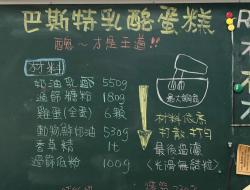 巴斯特乳酪蛋糕
酪~才是王道!!
材料
奶油乳酪 550g
過篩糖粉 180g
雞蛋(全蛋) 6顆
動物鮮奶油 530g
香草精 1t
過篩低粉 100g
最大鋼盆
材料依序
打散打勻
最後過濾
(光滑無結粒)